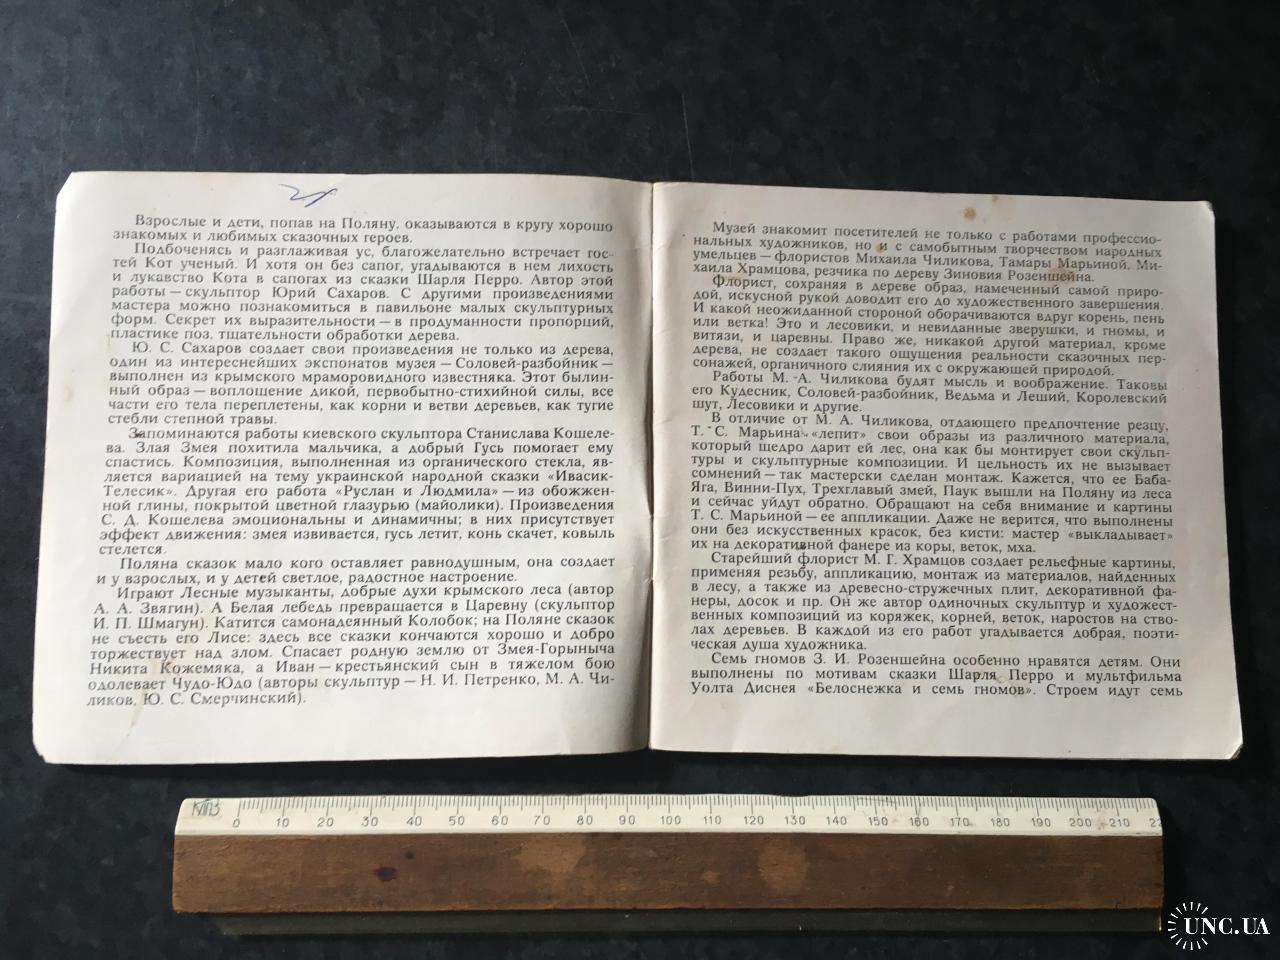 Взрослые и дети, попав на Поляну, оказываются в кругу хорошо
знакомых и любимых сказочных героев.
Подбоченясь и разглаживая ус, благожелательно встречает гос-
тей Кот ученый. И хотя он без сапог, угадываются в нем лихость
и лукавство Кота в сапогах из сказки Шарля Перро. Автор этой
работы — скульптор Юрий Сахаров. С другими произведениями
мастера можно познакомиться в павильоне малых скульптурных
форм. Секрет их выразительности — в продуманности пропорций,
пластике поз, тщательности обработки дерева.
Ю. С. Сахаров создает свои произведения не только из дерева,
один из интереснейших экспонатов музея — Соловей-разбойник —
выполнен из крымского мраморовидного известняка. Этот былин-
ный образ — воплощение дикой, первобытно-стихийной силы, все
части его тела переплетены, как корни и ветви деревьев, как тугие
стебли степной травы.
Запоминаются работы киевского скульптора Станислава Кошеле-
ва. Злая Змея похитила мальчика, а добрый Гусь помогает ему
спастись. Композиция, выполненная из органического стекла, яв-
ляется вариацией на тему украинской народной сказки «Ивасик-
Телесик». Другая его работа «Руслан и Людмила» — из обожжен-
ной глины, покрытой цветной глазурью (майолики). Произведения
С. Д. Кошелева эмоциональны и динамичны; в них присутствует
эффект движения: змея извивается, гусь летит, конь скачет, ковыль
стелется.
Поляна сказок мало кого оставляет равнодушным, она создает
и у взрослых, и у детей светлое, радостное настроение.
Играют Лесные музыканты, добрые духи крымского леса (автор
А. А. Звягин). А Белая лебедь превращается в Царевну (скульптор
И. П. Шмагун). Катится самонадеянный Колобок; на Поляне сказок
не съесть его Лисе: здесь все сказки кончаются хорошо и добро
торжествует над злом. Спасает родную землю от Змея-Горыныча
Никита Кожемяка, а Иван — крестьянский сын в тяжелом бою
одолевает Чудо-Юдо (авторы скульптур — Н. И. Петренко, М. А. Чи-
ликов, Ю. С. Смерчинский).
Музей знакомит посетителей не только с работами профессио-
нальных художников, но и с самобытным творчеством народных
умельцев — флористов Михаила Чиликова, Тамары Марьиной, Ми-
хаила Храмцова, резчика по дереву Зиновия Розеншейна.
Флорист, сохраняя в дереве образ, намеченный самой приро-
дой, искусной рукой доводит его до художественного завершения.
И какой неожиданной стороной оборачиваются вдруг корень, пень
или ветка! Это и лесовики, и невиданные зверушки, и гномы, и
витязи, и царевны. Право же, никакой другой материал, кроме
дерева, не создает такого ощущения реальности сказочных пер-
сонажей, органичного слияния их с окружающей природой.
Работы М. А. Чиликова будят мысль и воображение. Таковы
его Кудесник, Соловей-разбойник, Ведьма и Леший, Королевский
шут, Лесовики и другие.
В отличие от М. А. Чиликова, отдающего предпочтение резцу,
Т. С. Марьина «лепит» свои образы из различного материала,
который щедро дарит ей лес, она как бы монтирует свои скульп-
туры и скульптурные композиции. И цельность их не вызывает
сомнений — так мастерски сделан монтаж. Кажется, что ее Баба-
Яга, Винни-Пух, Трехглавый змей, Паук вышли на Поляну из леса
и сейчас уйдут обратно. Обращают на себя внимание и картины
Т. С. Марьиной — ее аппликации. Даже не верится, что выполнены
они без искусственных красок, без кисти: мастер «выкладывает»
их на декоративной фанере из коры, веток, мха.
Старейший флорист М. Г. Храмцов создает рельефные картины,
применяя резьбу, аппликацию, монтаж из материалов, найденных
в лесу, а также из древесно-стружечных плит, декоративной фа-
неры, досок и пр. Он же автор одиночных скульптур и художест-
венных композиций из коряжек, корней, веток, наростов на ство-
лах деревьев. В каждой из его работ угадывается добрая, поэти-
ческая душа художника.
Семь гномов З. И. Розеншейна особенно нравятся детям. Они
выполнены по мотивам сказки Шарля Перро и мультфильма
Уолта Диснея «Белоснежка и семь гномов». Строем идут семь
0 10 20 30 40 50 60 70 80 90 100 110 120 130 140 150 160 170 180 190 200 210 22
UNC.UA